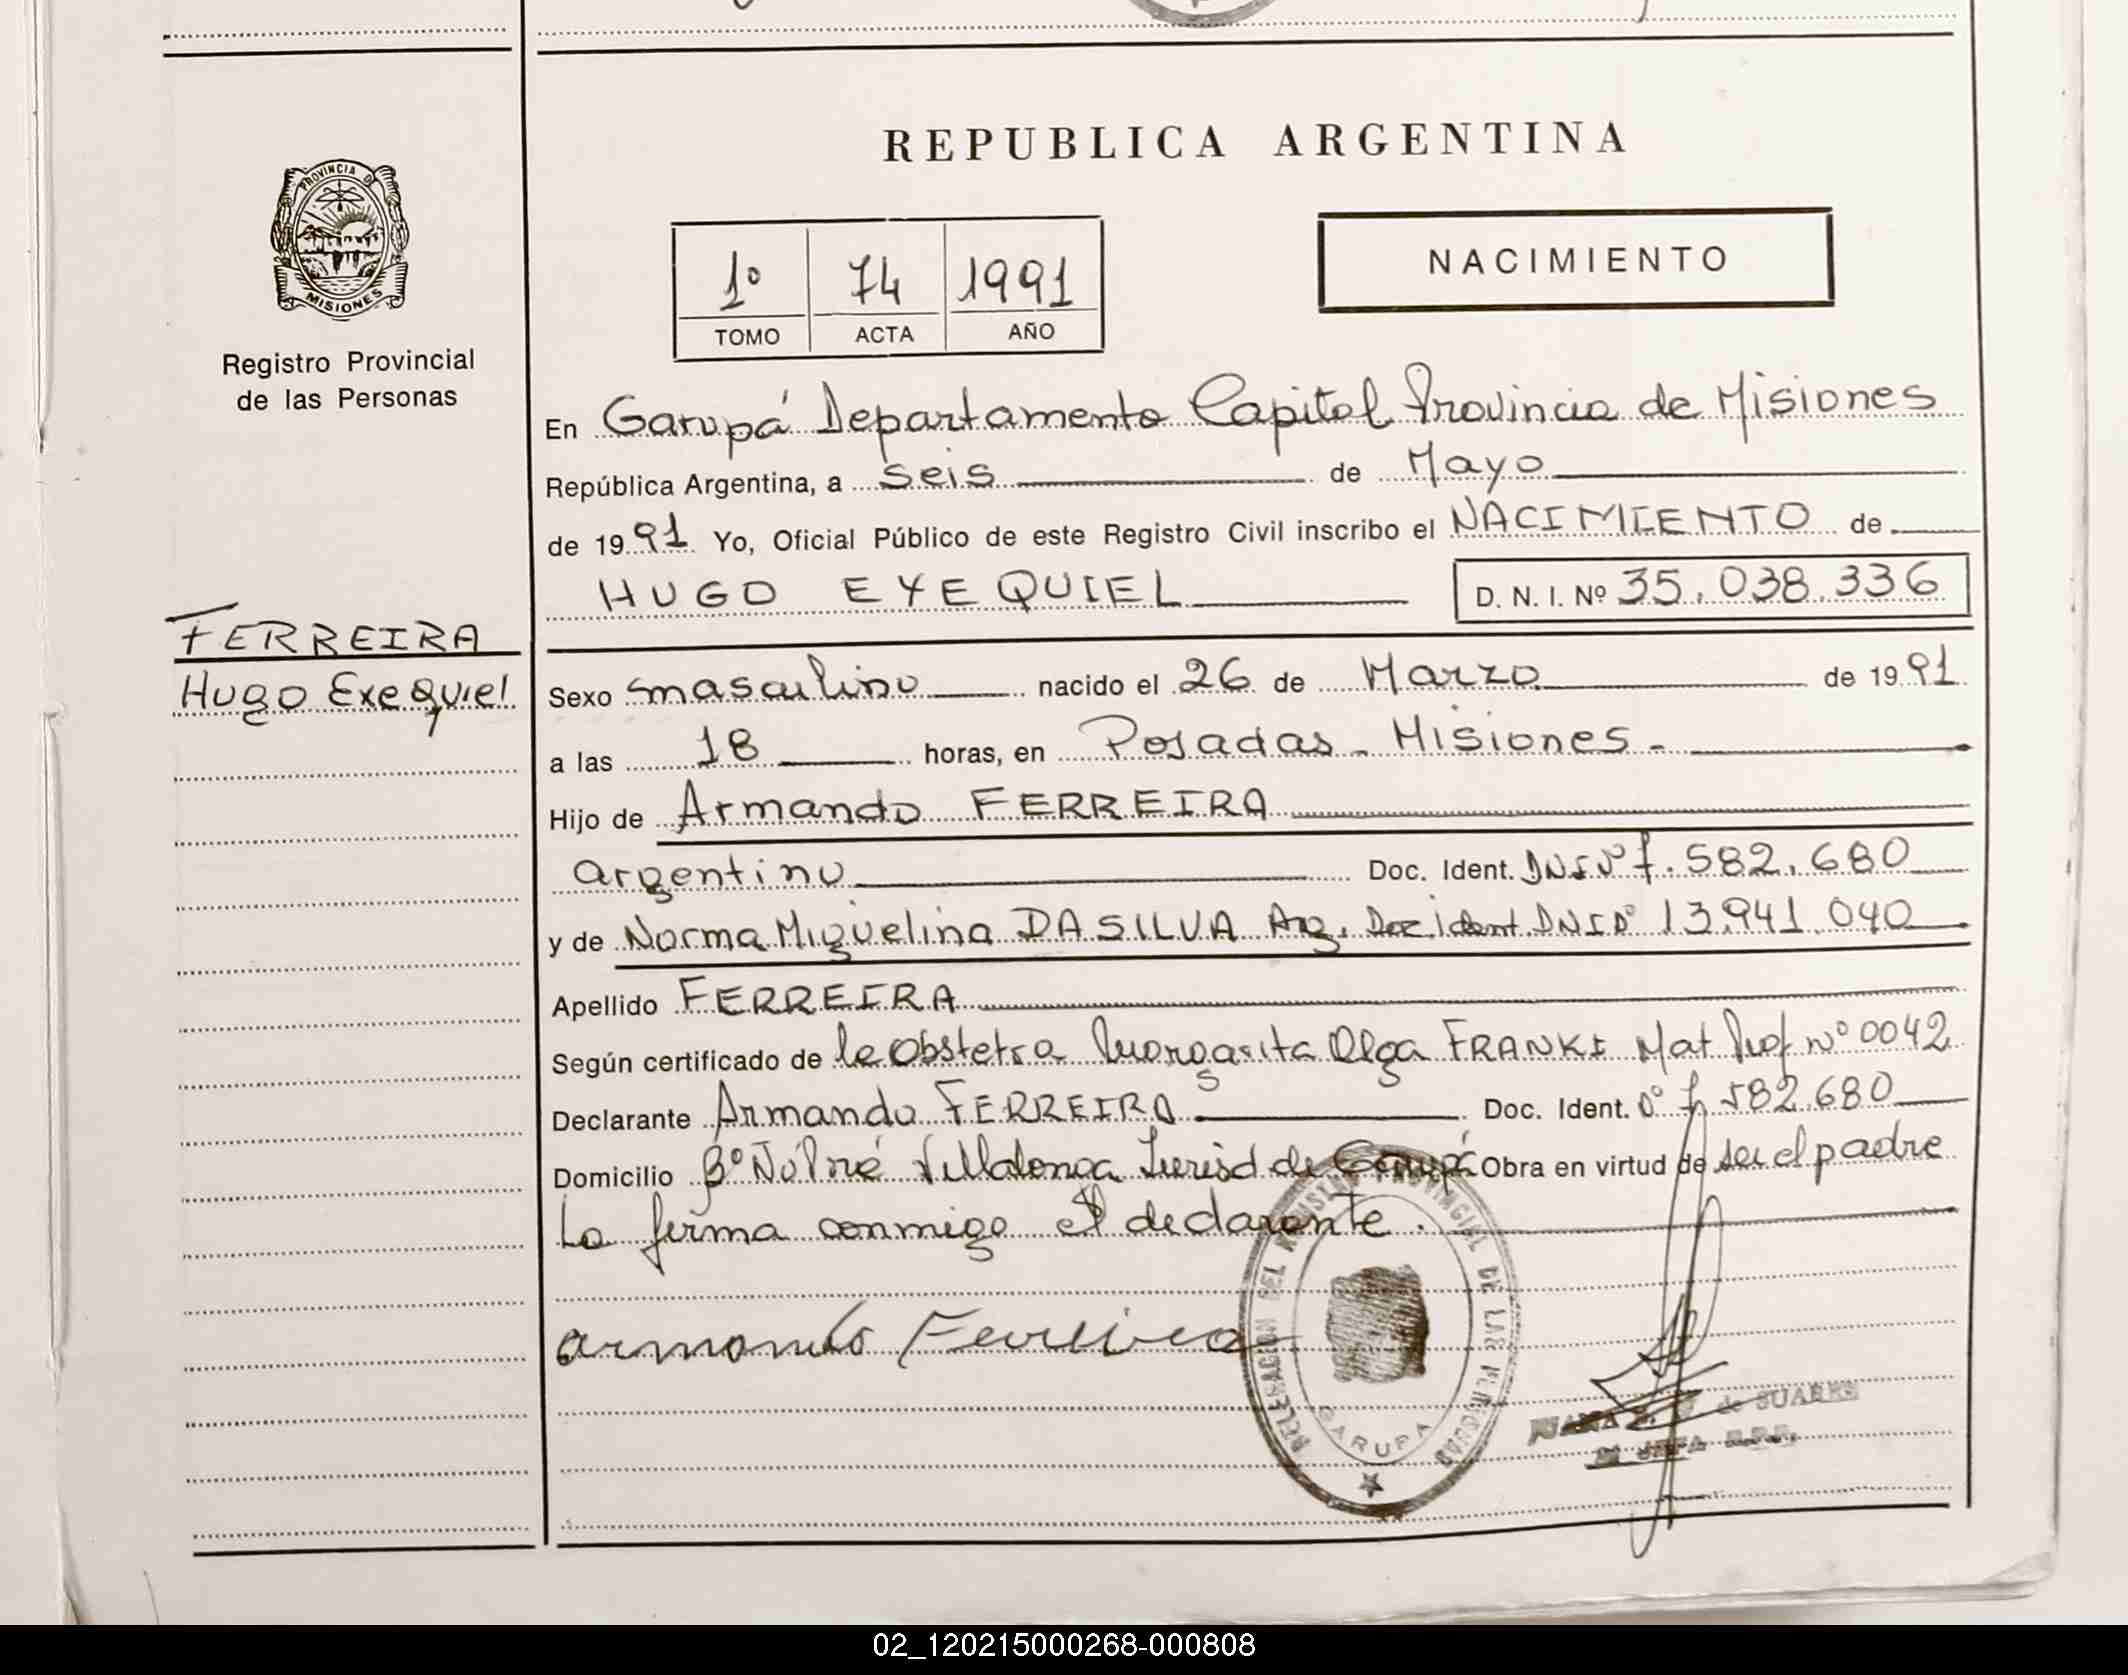 REPUBLICA ARGENTINA
PROVINCIA DE
MISIONES
Registro Provincial
de las Personas
1º 74 1991
TOMO ACTA AÑO
NACIMIENTO
En Garupá Departamento Capital Provincia de Misiones
República Argentina, a seis de Mayo
de 1991 Yo, Oficial Público de este Registro Civil inscribo el NACIMIENTO de
HUGO EXEQUIEL D. N. I. Nº 35.038.336
FERREIRA
Hugo Exequiel
Sexo masculino nacido el 26 de Marzo de 1991
a las 18 horas, en Posadas - Misiones -
Hijo de Armando FERREIRA
argentino Doc. Ident. DNI Nº 7.582.680
y de Norma Miguelina DA SILVA Arg. Doc ident. DNI Nº 13.941.040
Apellido FERREIRA
Según certificado de la Obstetra Margarita Olga FRANKI Mat Prof nº 0042
Declarante Armando FERREIRA Doc. Ident. Nº 7.582.680
Domicilio Bº Ñu Porá Villalonga Jurisd de Garupá Obra en virtud de ser el padre
La firma conmigo el declarante.
Armando Ferreira
DELEGACION DEL REGISTRO PROVINCIAL DE LAS PERSONAS
GARUPA
JUANA de SUAREZ
JEFA
02_120215000268-000808